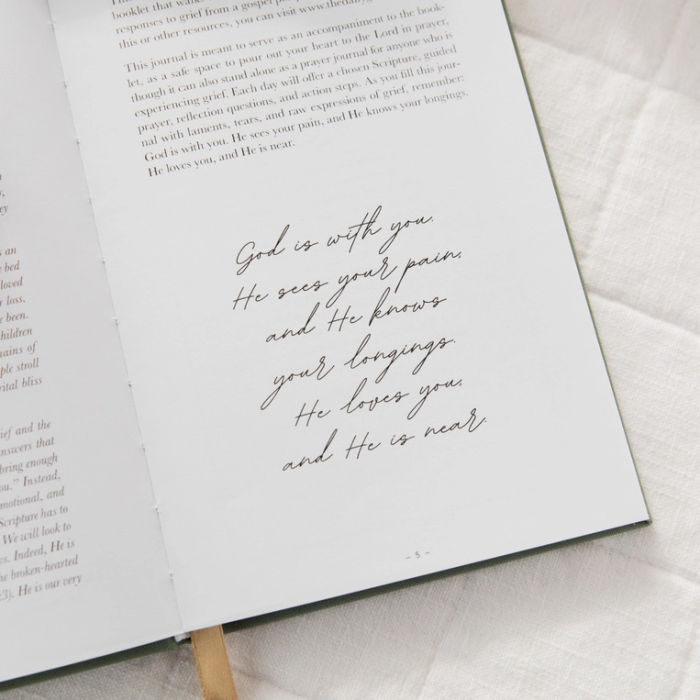 an
bed
loved
loss,
been.
children
of
stroll
bliss
and the
answers that
bring enough
you." Instead,
emotional, and
Scripture has to
We will look to
Indeed, He is
the broken-hearted
He is our very
booklet that
responses to grief from a gospel
this or other resources, you can visit
This journal is meant to serve as an accompaniment to the book-
let, as a safe space to pour out your heart to the Lord in prayer,
though it can also stand alone as a prayer journal for anyone who is
experiencing grief. Each day will offer a chosen Scripture, guided
prayer, reflection questions, and action steps. As you fill this jour-
nal with laments, tears, and raw expressions of grief, remember:
God is with you. He sees your pain, and He knows your longings.
He loves you, and He is near.
God is with you.
He sees your pain,
and He knows
your longings.
He loves you,
and He is near.
– 5 –